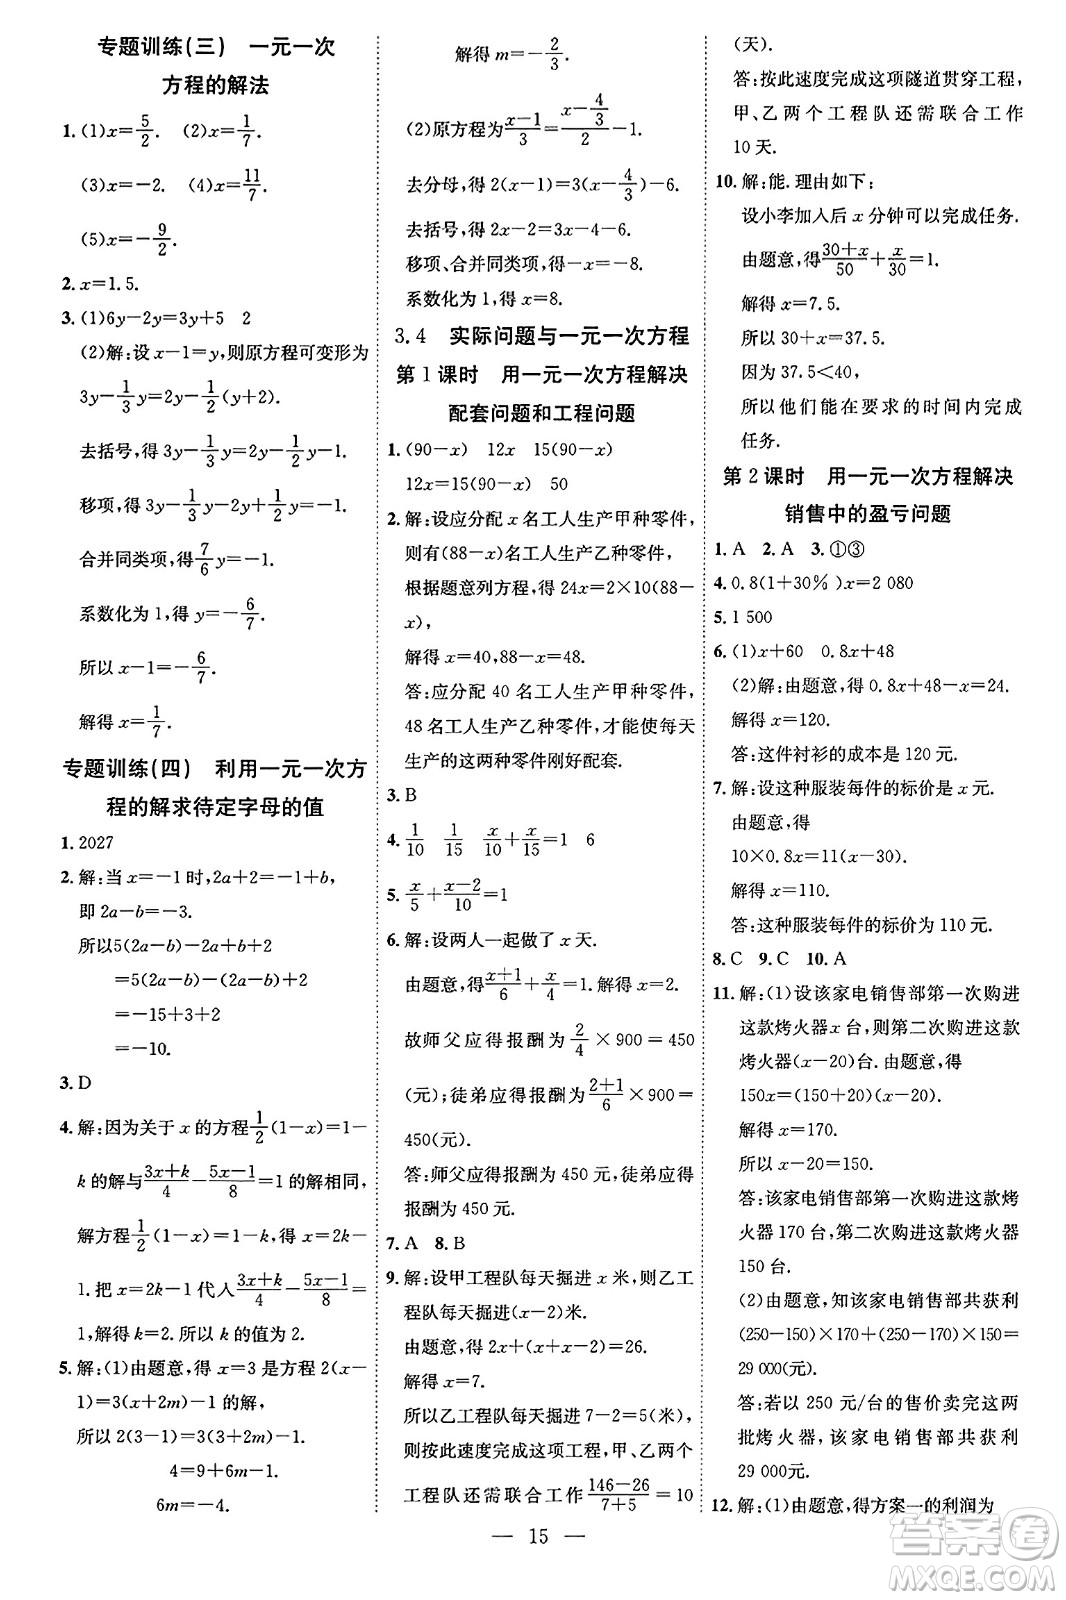 专题训练(三) 一元一次
方程的解法
1. (1)x=5/2. (2)x=1/7.
(3)x=-2. (4)x=11/7.
(5)x=-9/2.
2. x=1.5.
3. (1)6y-2y=3y+5 2
(2)解:设 x-1=y,则原方程可变形为
3y-1/3y=2y-1/2(y+2).
去括号,得 3y-1/3y=2y-1/2y-1.
移项,得 3y-1/3y-2y+1/2y=-1.
合并同类项,得7/6y=-1.
系数化为 1,得 y=-6/7.
所以 x-1=-6/7.
解得 x=1/7.
专题训练(四) 利用一元一次方
程的解求待定字母的值
1. 2027
2. 解:当 x=-1 时,2a+2=-1+b,
即 2a-b=-3.
所以5(2a-b)-2b+4a+2
=5(2a-b)+2(2a-b)+2
=-15+3+2
=-10.
3. D
4. 解:因为关于 x 的方程1/2(1-x)=1-
k 的解与(3x+k)/4-(5x-1)/8=1 的解相同,
解方程1/2(1-x)=1-k,得 x=2k-
1.把 x=2k-1 代入(3x+k)/4-(5x-1)/8=
1,解得 k=2.所以 k 的值为 2.
5. 解:(1)由题意,得 x=3 是方程 2(x-
1)=3(x+2m)-1 的解,
所以 2(3-1)=3(3+2m)-1.
4=9+6m-1.
6m=-4.
解得 m=-2/3.
(2)原方程为(x-1)/3=(x-4/3)/2-1.
去分母,得 2(x-1)=3(x-4/3)-6.
去括号,得 2x-2=3x-4-6.
移项、合并同类项,得-x=-8.
系数化为 1,得 x=8.
3.4 实际问题与一元一次方程
第 1 课时 用一元一次方程解决
配套问题和工程问题
1. (90-x) 12x 15(90-x)
12x=15(90-x) 50
2. 解:设应分配 x 名工人生产甲种零件,
则有(88-x)名工人生产乙种零件,
根据题意列方程,得 24x=2×10(88-
x),
解得 x=40,88-x=48.
答:应分配 40 名工人生产甲种零件,
48 名工人生产乙种零件,才能使每天
生产的这两种零件刚好配套.
3. B
4. 1/10 1/15 x/10+x/15=1 6
5. x/5+(x-2)/10=1
6. 解:设两人一起做了 x 天.
由题意,得(x+1)/6+x/4=1,解得 x=2.
故师父应得报酬为2/4×900=450
(元);徒弟应得报酬为(2+1)/6×900=
450(元).
答:师父应得报酬 450 元,徒弟应得
报酬为 450 元.
7. A 8. B
9. 解:设甲工程队每天掘进 x 米,则乙工
程队每天掘进(x-2)米.
由题意,得 2x+(x+x-2)=26.
解得 x=7.
所以乙工程队每天掘进 7-2=5(米).
则按此速度完成这项工程,甲、乙两个
工程队还需联合工作(146-26)/(7+5)=10
(天).
答:按此速度完成这项隧道贯穿工程,
甲、乙两个工程队还需联合工作
10 天.
10. 解:能.理由如下:
设小李加入后 x 分钟可以完成任务.
由题意,得(30+x)/50+x/30=1.
解得 x=7.5.
所以 30+x=37.5.
因为 37.5<40,
所以他们能在要求的时间内完成
任务.
第 2 课时 用一元一次方程解决
销售中的盈亏问题
1. A 2. A 3. ①③
4. 0.8(1+30%)x=2 080
5. 1 500
6. (1)x+60 0.8x+48
(2)解:由题意,得 0.8x+48-x=24.
解得 x=120.
答:这件衬衫的成本是 120 元.
7. 解:设这种服装每件的标价是 x 元.
由题意,得
10×0.8x=11(x-30).
解得 x=110.
答:这种服装每件的标价为 110 元.
8. C 9. C 10. A
11. 解:(1)设该家电销售部第一次购进
这款烤火器 x 台,则第二次购进这款
烤火器(x-20)台.由题意,得
150x=(150+20)(x-20).
解得 x=170.
所以 x-20=150.
答:该家电销售部第一次购进这款烤
火器 170 台,第二次购进这款烤火器
150 台.
(2)由题意,知该家电销售部共获利
(250-150)×170+(250-170)×150=
29 000(元).
答:若以 250 元/台的售价卖完这两
批烤火器,该家电销售部共获利
29 000元.
12. 解:(1)由题意,得方案一的利润为
— 15 —
答案卷
MXQE.COM